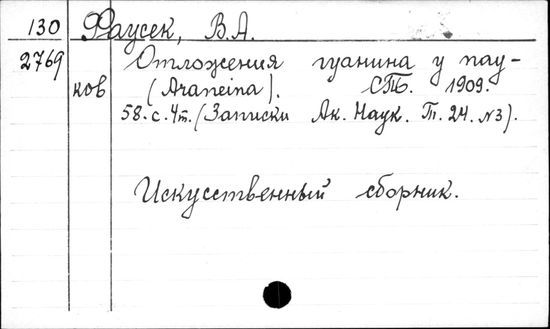 130 Фаусек, В.А.
2769 Отложения гуанина у пау-
ков (Araneina). СПб. 1909.
58. с. 4т. (Записки Ак. Наук. Т. 24. №3).
Искусственный сборник.